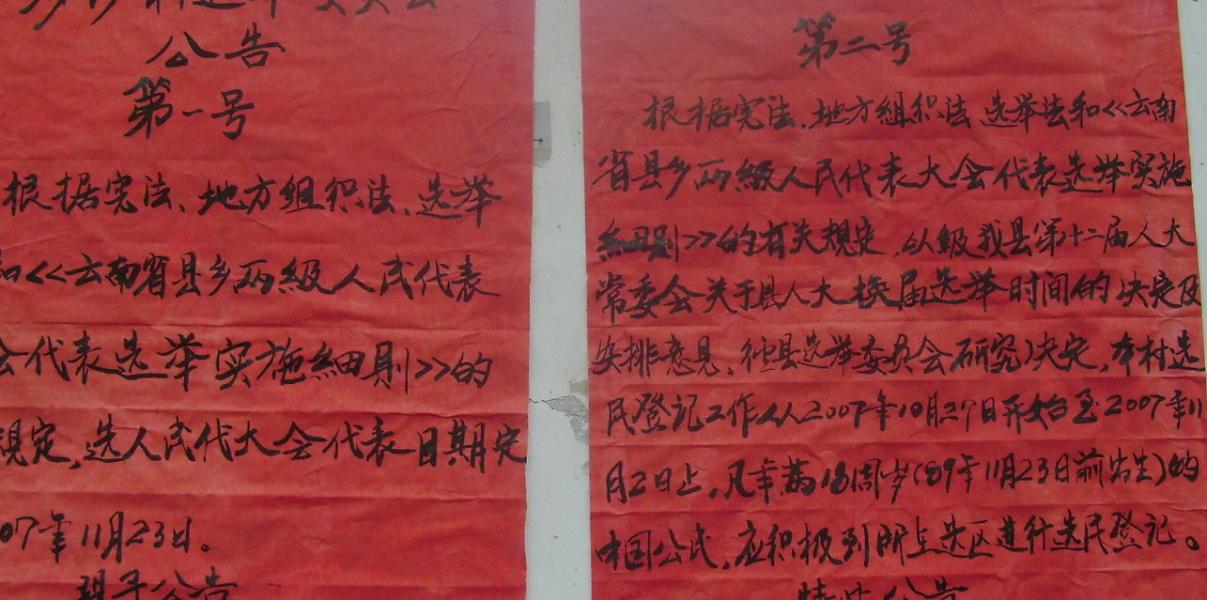 选举委员会
公告
第一号
根据宪法、地方组织法、选举
和<<云南省县乡两级人民代表
会代表选举实施细则>>的
规定,选人民代大会代表日期定
07年11月23日。
现予公告
第二号
根据宪法、地方组织法、选举法和<<云南
省县乡两级人民代表大会代表选举实施
细则>>的有关规定,以级我县第十二届人大
常委会关于县人大换届选举时间的决定及
安排意见,径县选举委员会研究决定,本村选
民登记工作从2007年10月27日开始至2007年11
月2日上,凡年满18周岁(89年11月23日前出生)的
中国公民,应积极到所在选区进行选民登记。
特此公告